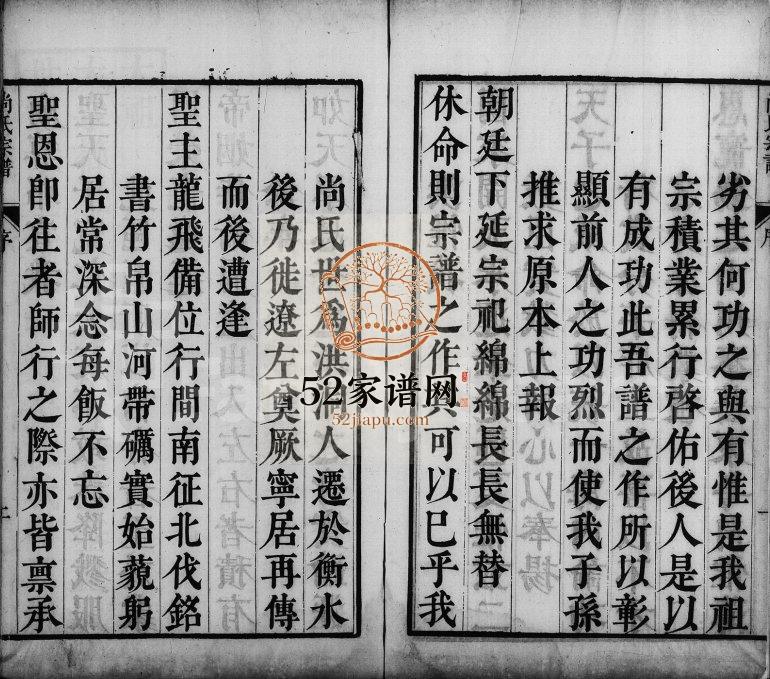 劣其何功之與有惟是我祖
宗積業累行啓佑後人是以
有成功此吾譜之作所以彰
顯前人之功烈而使我子孫
推求原本上報
朝廷下延宗祀綿綿長長無替
休命則宗譜之作其可以已乎我
尚氏世為洪洞人遷於衡水
後乃徙遼左奠厥寧居再傳
而後遭逢
聖主龍飛備位行間南征北伐銘
書竹帛山河帶礪實始藐躬
居常深念每飯不忘
聖恩即往者師行之際亦皆禀承
尚氏宗譜
序
52家谱网
52jiapu.com